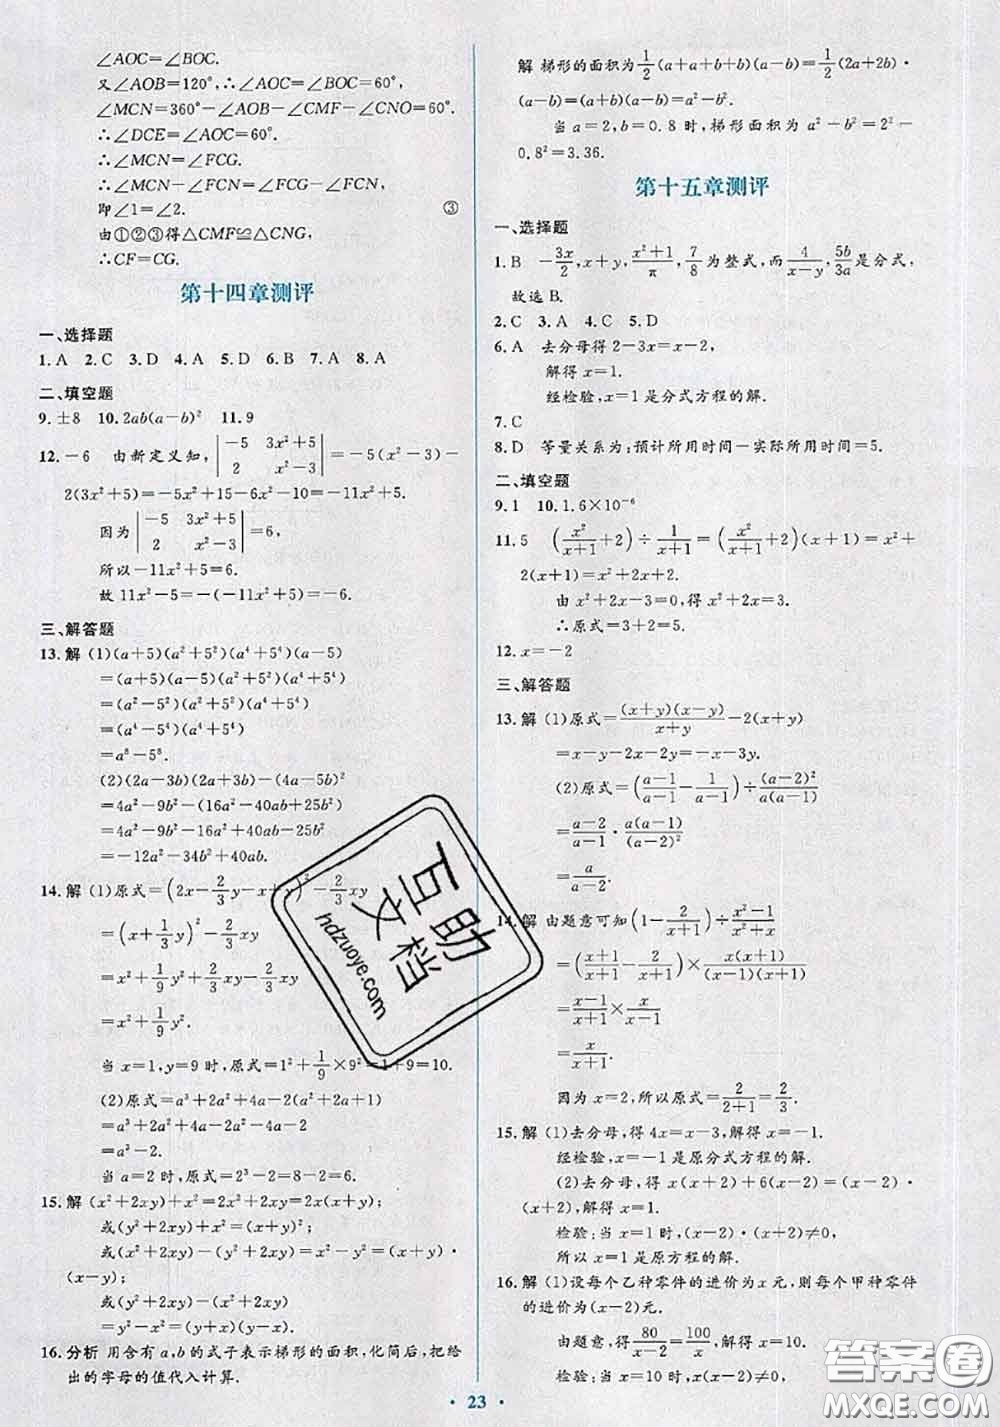 ∠AOC=∠BOC.
又∠AOB=120°,∴∠AOC=60°,
∠MCN=360°-∠AOB-∠CMF-∠CNO=60°.
∴∠DCE=∠AOC=60°.
∴∠MCN=∠FCG.
∴∠MCN-∠FCN=∠FCG-∠FCN,
即∠1=∠2. ③
由①②③得△CMF≌△CNG,
∴CF=CG.
第十四章测评
一、选择题
1.A 2.C 3.D 4.A 5.D 6.B 7.A 8.A
二、填空题
9.±8 10.2ab(a-b)² 11.9
12.-6 由新定义知,|-5 3x²+5; 2 x²-3|=-5(x²-3)-
2(3x²+5)=-5x²+15-6x²-10=-11x²+5.
因为|-5 3x²+5; 2 x²-3|=6,
所以-11x²+5=6.
故 11x²-5=-(-11x²+5)=-6.
三、解答题
13.解 (1)(a+5)(a²+5²)(a⁴+5⁴)(a-5)
=(a+5)(a-5)(a²+5²)(a⁴+5⁴)
=(a²-5²)(a²+5²)(a⁴+5⁴)
=(a⁴-5⁴)(a⁴+5⁴)
=a⁸-5⁸.
(2)(2a-3b)(2a+3b)-(4a-5b)²
=4a²-9b²-(16a²-40ab+25b²)
=4a²-9b²-16a²+40ab-25b²
=-12a²-34b²+40ab.
14.解 (1)原式=(2x-2/3y-x+y)²-2/3xy
=(x+1/3y)²-2/3xy
=x²+1/9y²+2/3xy-2/3xy
=x²+1/9y².
当 x=1,y=9 时,原式=1²+1/9×9²=1+9=10.
(2)原式=a³+2a²+4a-2(a²+2a+1)
=a³+2a²+4a-2a²-4a-2
=a³-2.
当 a=2 时,原式=2³-2=8-2=6.
15.解 (x²+2xy)+x²=2x²+2xy=2x(x+y);
或(y²+2xy)+x²=(x+y)²;
或(x²+2xy)-(y²+2xy)=x²-y²=(x+y)·
(x-y);
或(y²+2xy)-(x²+2xy)
=y²-x²=(y+x)(y-x).
16.分析 用含有 a,b 的式子表示梯形的面积,化简后,把给
出的字母的值代入计算.
解 梯形的面积为1/2(a+a+b+b)(a-b)=1/2(2a+2b)·
(a-b)=(a+b)(a-b)=a²-b².
当 a=2,b=0.8 时,梯形面积为 a²-b²=2²-
0.8²=3.36.
第十五章测评
一、选择题
1.B -3x/2,x+y,(x²+1)/π,7/8为整式,而4/(x-y),5b/3a是分式,
故选 B.
2.C 3.A 4.C 5.D
6.A 去分母得 2-3x=x-2,
解得 x=1.
经检验,x=1 是分式方程的解.
7.C
8.D 等量关系为:预计所用时间-实际所用时间=5.
二、填空题
9.1 10.1.6×10⁻⁶
11.5 (x²/(x+1)+2)÷1/(x+1)=(x²/(x+1)+2)(x+1)=x²+
2(x+1)=x²+2x+2.
由 x²+2x-3=0,得 x²+2x=3.
∴原式=3+2=5.
12.x=-2
三、解答题
13.解 (1)原式=(x+y)(x-y)/(x+y)-2(x+y)
=x-y-2x-2y=-x-3y.
(2)原式=((a-1)/(a-1)-1/(a-1))÷(a-2)²/(a(a-1))
=(a-2)/(a-1)·a(a-1)/(a-2)²
=a/(a-2).
14.解 由题意可知(1-2/(x+1))÷(x²-1)/(x²+x)
=((x+1)/(x+1)-2/(x+1))×x(x+1)/((x-1)(x+1))
=(x-1)/(x+1)×x/(x-1)
=x/(x+1).
因为 x=2,所以原式=2/(2+1)=2/3.
15.解 (1)去分母,得 4x=x-3,解得 x=-1.
经检验,x=-1 是原分式方程的解.
(2)去分母,得 x(x+2)+6(x-2)=(x-2)·
(x+2),解得 x=1.
检验:当 x=1 时,(x-2)·(x+2)≠0,
所以 x=1 是原方程的解.
16.解 (1)设每个乙种零件的进价为 x 元,则每个甲种零件
的进价为(x-2)元.
由题意,得80/(x-2)=100/x,解得 x=10.
检验:当 x=10 时,x(x-2)≠0,
· 23 ·
互助文档
hdzuoye.com
答案圈
MXQE.COM